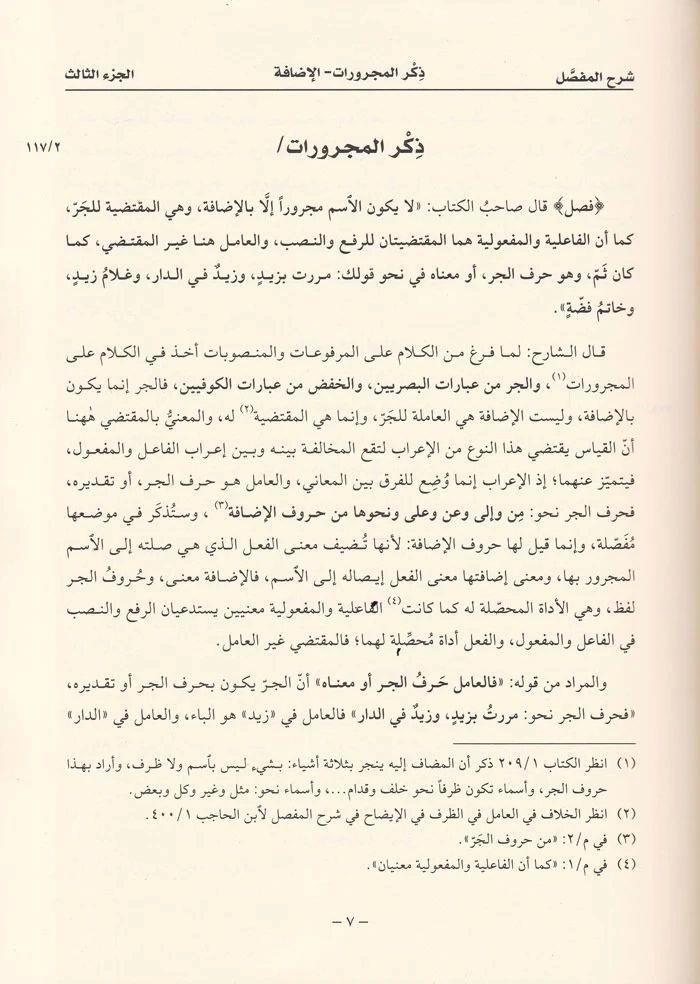 شرح المفصَّل ذِكْر المجرورات- الإضافة الجزء الثالث
ذِكْر المجرورات/ ١١٧/٢
﴿فصل﴾ قال صاحبُ الكتاب: «لا يكون الأسم مجروراً إلَّا بالإضافة، وهي المقتضية للجَرّ،
كما أن الفاعلية والمفعولية هما المقتضيتان للرفع والنصب، والعامل هنا غير المقتضي، كما
كان ثَمّ، وهو حرف الجر، أو معناه في نحو قولك: مررت بزيدٍ، وزيدٌ في الدار، وغلامُ زيدٍ،
وخاتمُ فضّةٍ».
قال الشارح: لما فرغ من الكلام على المرفوعات والمنصوبات أخذ في الكلام على
المجرورات(١)، والجر من عبارات البصريين، والخفض من عبارات الكوفيين، فالجر إنما يكون
بالإضافة، وليست الإضافة هي العاملة للجَرّ، وإنما هي المقتضية(٢) له، والمعنيُّ بالمقتضي هٰهنا
أنّ القياس يقتضي هذا النوع من الإعراب لتقع المخالفة بينه وبين إعراب الفاعل والمفعول،
فيتميّز عنهما؛ إذ الإعراب إنما وُضِع للفرق بين المعاني، والعامل هو حرف الجر، أو تقديره،
فحرف الجر نحو: مِن وإلى وعن وعلى ونحوها من حروف الإضافة(٣)، وستُذكَر في موضعها
مُفَصّلة، وإنما قيل لها حروف الإضافة: لأنها تُضيف معنى الفعل الذي هي صلته إلى الأسم
المجرور بها، ومعنى إضافتها معنى الفعل إيصاله إلى الأسم، فالإضافة معنى، وحُروفُ الجر
لفظ، وهي الأداة المحصّلة له كما كانت(٤) الفاعلية والمفعولية معنيين يستدعيان الرفع والنصب
في الفاعل والمفعول، والفعل أداة مُحصِّلة لهما؛ فالمقتضي غير العامل.
والمراد من قوله: «فالعامل حَرفُ الجر أو معناه» أنّ الجرّ يكون بحرف الجر أو تقديره،
«فحرف الجر نحو: مررتُ بزيدٍ، وزيدٌ في الدار» فالعامل في «زيد» هو الباء، والعامل في «الدار»
(١) انظر الكتاب ٢٠٩/١ ذكر أن المضاف إليه ينجر بثلاثة أشياء: بشيء ليس بٱسم ولا ظرف، وأراد بهذا
حروف الجر، وأسماء تكون ظرفاً نحو خلف وقدام...، وأسماء نحو: مثل وغير وكل وبعض.
(٢) انظر الخلاف في العامل في الظرف في الإيضاح في شرح المفصل لٱبن الحاجب ٤٠٠/١.
(٣) في م/٢: «من حروف الجَرّ».
(٤) في م/١: «كما أن الفاعلية والمفعولية معنيان».
– ٧ –